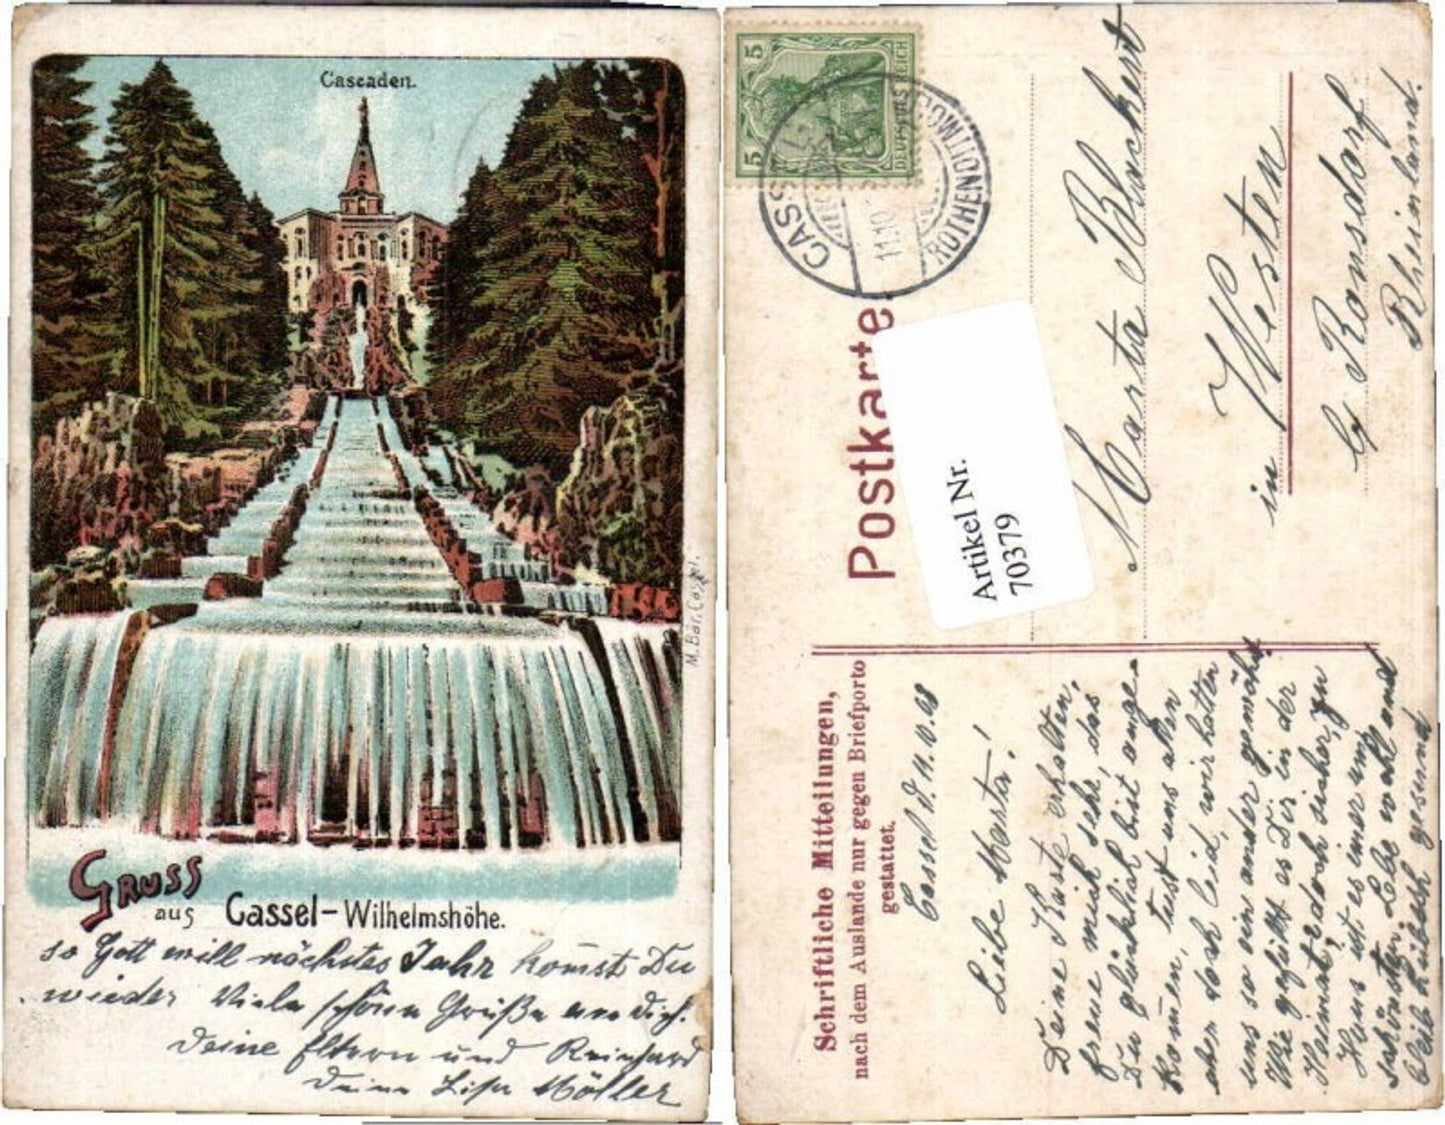 Cascaden.
M. Bär, Cassel.
Gruss
aus Cassel-Wilhelmshöhe.
so Gott will nächstes Jahr komst Du
wieder Viele schöne Grüße an Dich.
Deine Eltern und Reinhard
Deine Lisa Möller
5 5
DEUTSCHES REICH
CASSEL
ROTHENDITMOLD
11.10.
Postkarte
Artikel Nr.
70379
Marta Blackert
in Westen
b/ Ronsdorf
Rheinland.
Schriftliche Mitteilungen,
nach dem Auslande nur gegen Briefporto
gestattet.
Cassel d. 11.10.08
Liebe Marta!
Deine Karte erhalten,
freue mich sehr, das
Du glücklich bist ange-
komen, tust uns aber
aber doch leid, wir hatten
uns so ein ander gewöhnt
Wie gefällt es Dir in der
Heimat, doch sicher, zu
Haus ist es imer am
schönsten. Lebe wohl und
bleib hübsch gesund